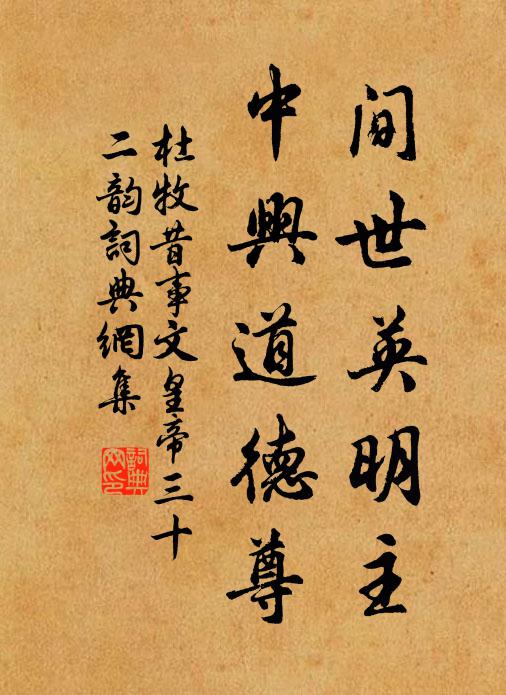 間世英明主
中興道德尊
杜牧昔事文皇帝三十
二韵詞典網集
詞典
网印